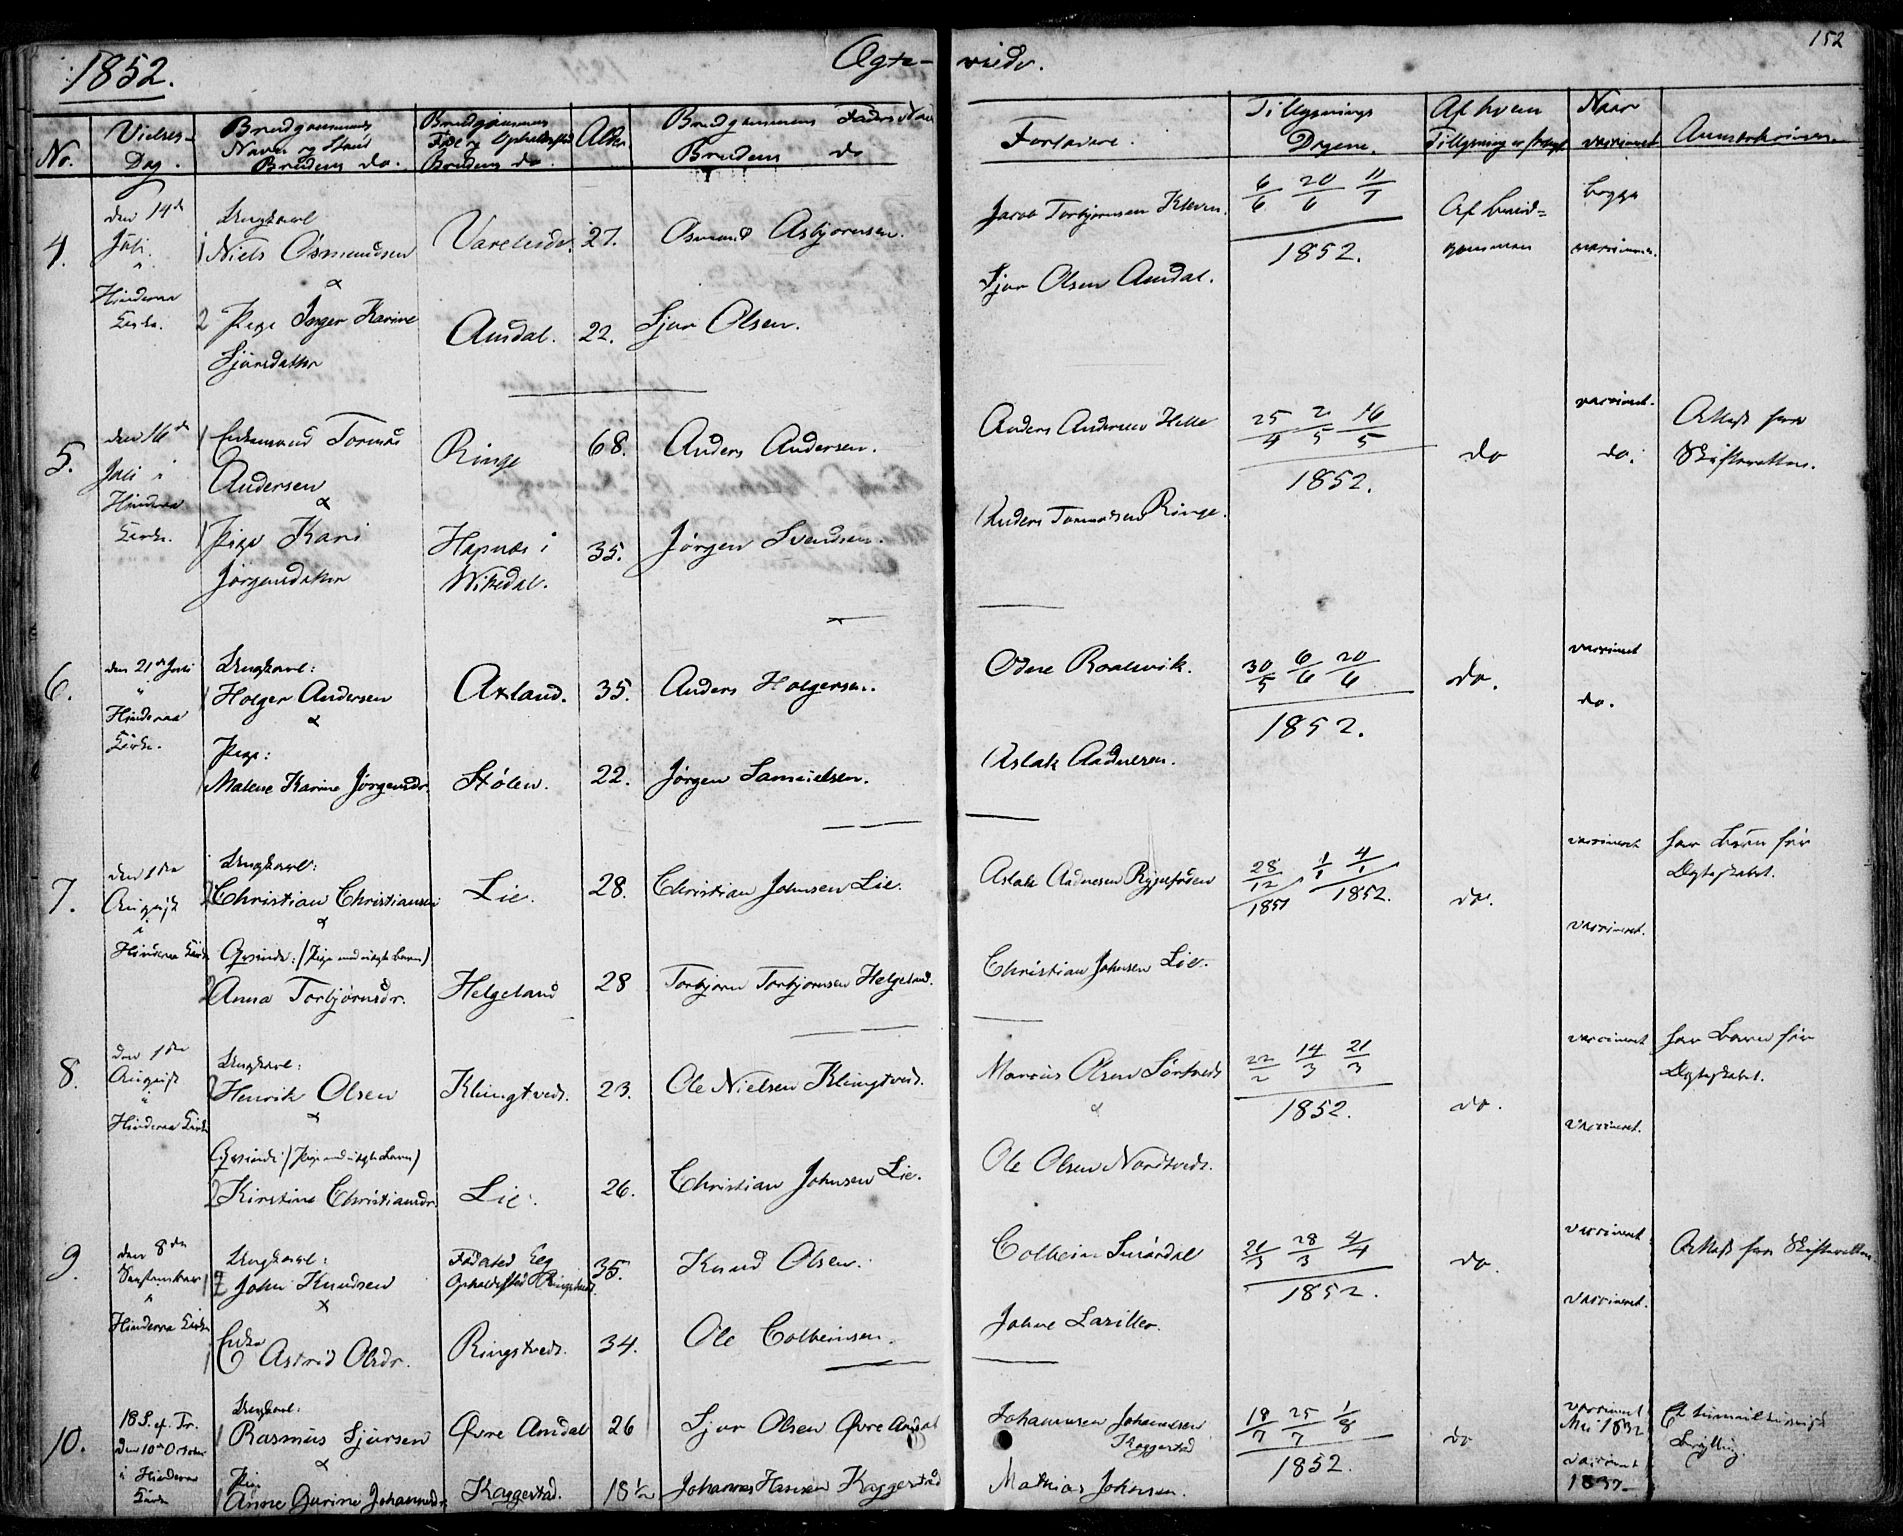 1852.
Ægte-
viede.
152
No.
Vielses-
Dag.
Brudgommens
Navn og Stand
Brudens do.
Brudgommens
Føde og Opholdssted
Brudens do.
Alder.
Brudgommens Faders Navn
Brudens do
Forlovere.
Tillysnings
Dagene.
Af hvem
Tillysning er skeet
Naar
vaccineret
Anmærkninger
4.
den 14de
Juli
i
Hinderaa
Kirke.
Ungkarl
1 Niels Osmundsen
&
2 Pige Inger Karine
Sjursdatter
27.
Osmund Asbjørnsen.
Amdal.
22.
Sjur Olsen.
Jacob Torbjørnsen
Sjur Olsen Amdal.
6/6 20/6 11/7
1852.
Af brud-
gommen
begge
vaccinerede.
5.
den 16de
Juli i
Hinderaa
Kirke.
1 Enkemand Tormod
Andersen
&
1 Pige Kari
Jørgensdatter
Ringe
68.
Anders Andersen.
Hapnæs i
Wikedal.
35.
Jørgen Svendsen.
Anders Andersen Helle
Anders Tormodsen Ringe.
25/4 2/5 16/5
1852.
do
vaccineret.
do.
Attest fra
Skifteretten.
6.
den 21de Juli
i
Hinderaa
Kirke.
Ungkarl:
1 Holger Andersen
&
Pige:
1 Malene Karine Jørgensdr.
Axland.
35.
Anders Holgersen.
Stølen.
22.
Jørgen Samuelsen.
Odne Roalsvik.
Aslak Aadnesen.
30/5 6/6 20/6
1852.
do.
vaccineret
do.
7.
den 1ste
August
i
Hinderaa Kirke
Ungkarl:
2 Christian Christiansen
&
Qvinde: / Pige med uægte Barn /
2 Anna Torbjørnsdr.
Lie.
28.
Christian Johnsen Lie.
Helgeland
28
Torbjørn Torbjørnsen Helgeland.
Aslak Aadnesen
Christian Johnsen Lie.
28/12 1851, 1/1 4/1 1852.
do.
vaccineret
vaccineret.
har Børn før
Ægteskabet.
8.
den 1ste
August
i
Hinderaa Kirke
Ungkarl:
2 Henrik Olsen
&
Qvinde / Pige med uægte Barn /
2 Kirstine Christiansdr.
Klingtveds.
23.
Ole Nielsen Klingtved.
Lie.
26.
Christian Johnsen Lie.
Marcus Olsen
&
Ole Olsen Nordtveds.
22/2 14/3 21/3
1852.
do.
vaccineret
vaccineret.
har Barn før
Ægteskabet.
9.
den 8de
September
i
Hinderaa Kirke
Ungkarl:
John Knudsen
&
Enke
1 Astrid Olsdr.
Fødested Eeg
Opholdssted Ringstveds.
35.
Knud Olsen.
Ringstveds.
34.
Ole Colbeinsen.
Colbein
Johne
21/3 28/3 4/4
1852.
do.
vaccineret
vaccineret.
Attest fra Skifteretten
10.
18 S. ef. Tr.
den 10de October
i Hinderaa
Kirke
Ungkarl:
1 Rasmus Sjursen
&
Pige
1 Anne Gurine Johannesdr.
Øvre Amdal
26
Sjur Olsen Øvre Amdal
Kaggestad.
18 1/2
Johannes Hansen Kaggestad
Johannesen
Kaggestad
Mathias Johnsen.
18/7 25/7 1/8
1852.
do
vaccineret
1832
vaccineret